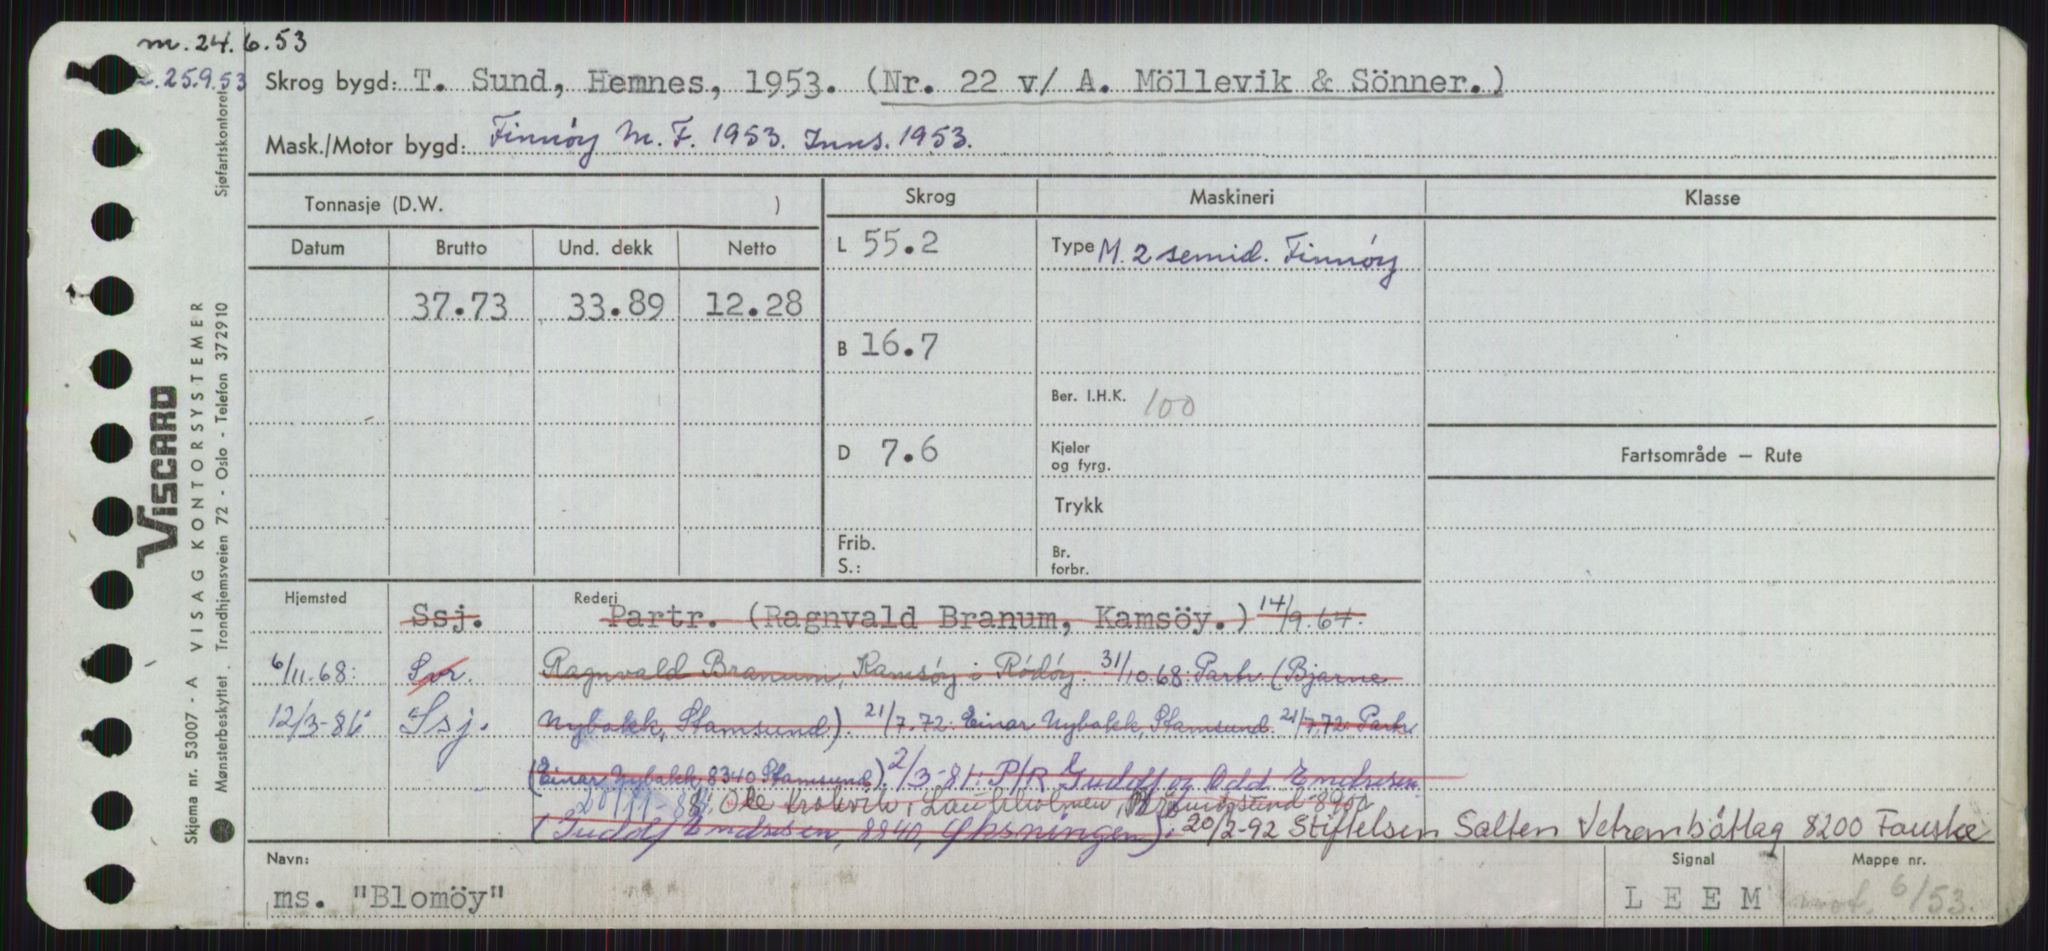 m. 24.6.53
25.9.53
Skrog bygd: T. Sund, Hemnes, 1953. (Nr. 22 v/ A. Möllevik & Sönner.)
Mask./Motor bygd: Finnöy M. F. 1953. Inns. 1953.
Sjøfartskontoret
VISCARD
Skjema nr. 53007 - A VISAG KONTORSYSTEMER
Mønsterbeskyttet. Trondhjemsveien 72 - Oslo - Telefon 372910
Tonnasje (D.W. )
Skrog
Maskineri
Klasse
Datum Brutto Und. dekk Netto
37.73 33.89 12.28
L 55.2
B 16.7
D 7.6
Frib.
S.:
Type M. 2 semid. Finnöy
Ber. I.H.K. 100
Kjeler
og fyrg.
Trykk
Br.
forbr.
Fartsområde — Rute
Hjemsted Ssj. Rederi Partr. (Ragnvald Branum, Kamsöy.) 14/9.64.
6/11.68: Svr. Ragnvald Branum, Kamsöy i Rödöy. 31/10.68: Partr. (Bjarne
12/3-81: Ssj. Nybakk, Stamsund). 21/7.72: Einar Nybakk, Stamsund. 21/7.72 Partr.
(Einar Nybakk, 8340 Stamsund). 2/3-81: P/R Gudolf og Odd Endresen
Ole
(Gudolf Endresen, 8840, Öksningen). 20/2-92 Stiftelsen Salten Veteranbåtlag 8200 Fauske
Navn:
ms. "Blomöy"
Signal
L E E M
Mappe nr.
6/53.